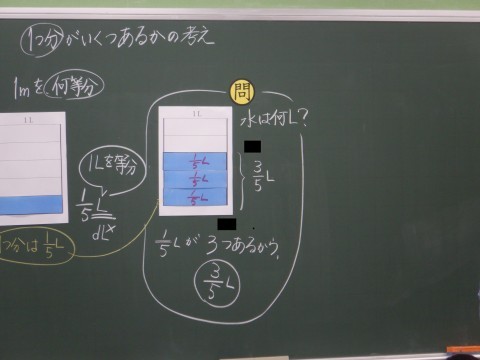 1つ分がいくつあるかの考え
1mを何等分
1L
1Lを等分
1/5 L
dL ×
1つ分は 1/5 L
問
水は何L?
1L
1/5 L
1/5 L
1/5 L
3/5 L
1/5 Lが 3つあるから、
3/5 L